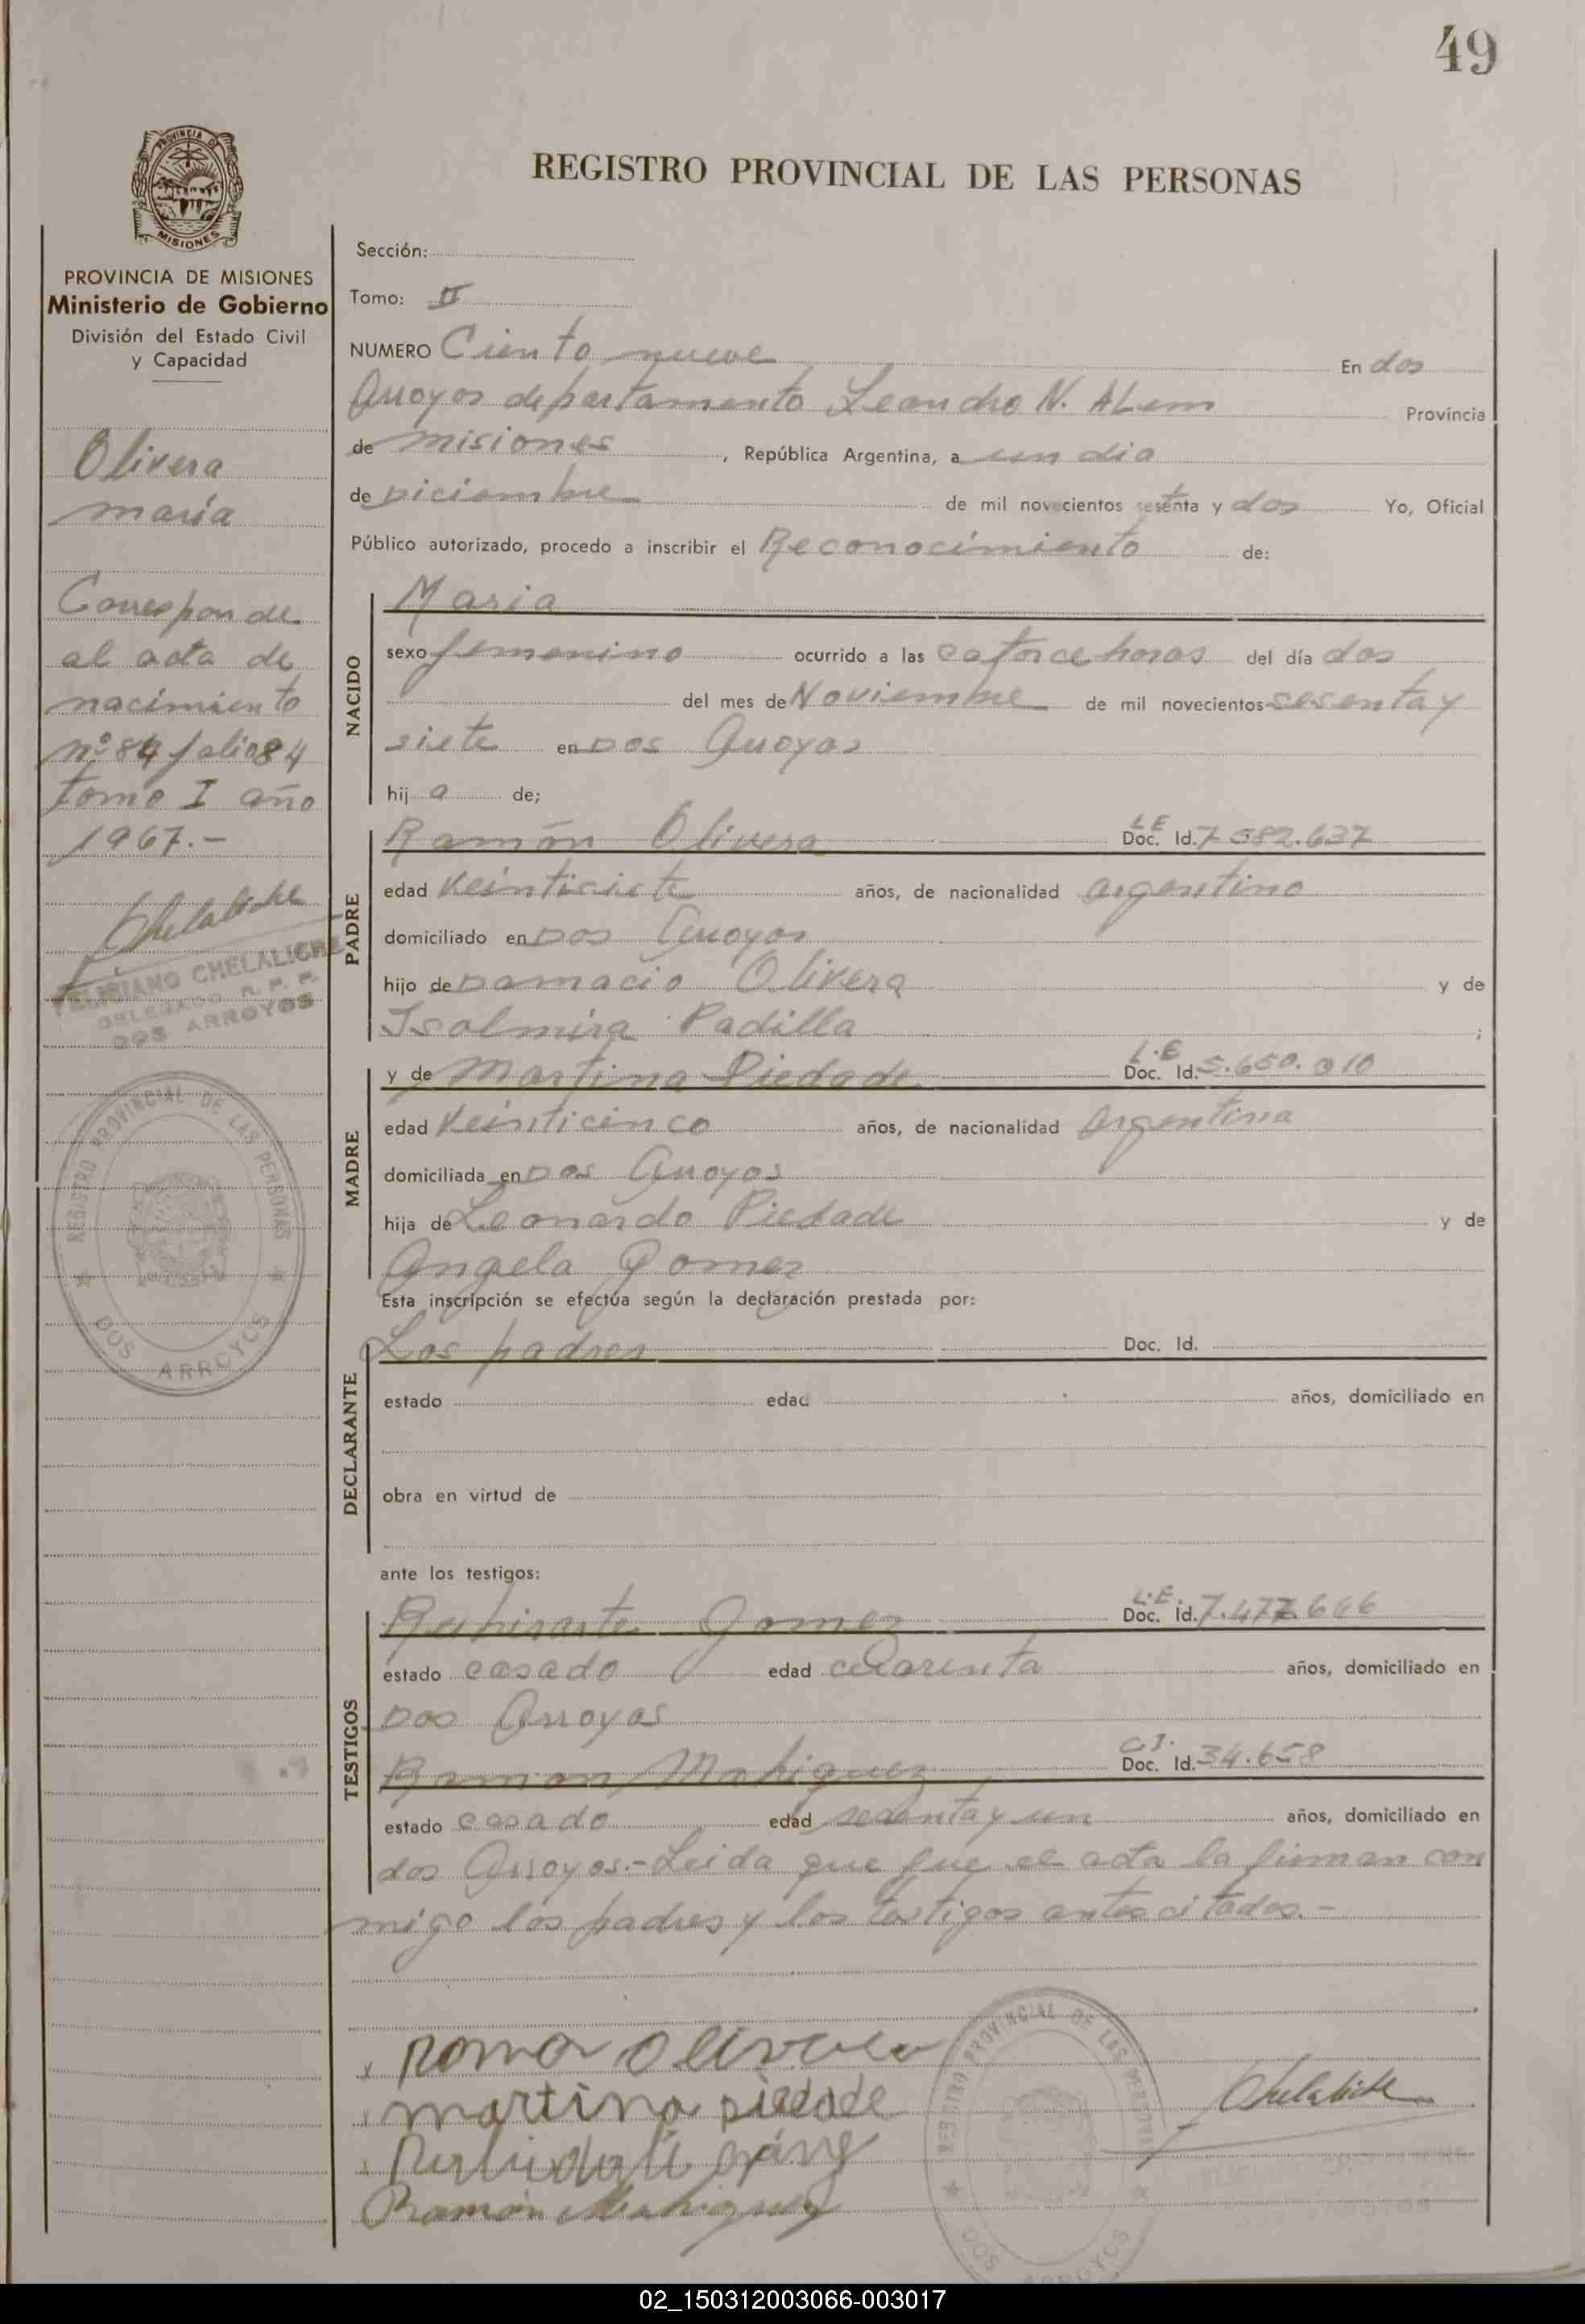 49
PROVINCIA DE MISIONES
REGISTRO PROVINCIAL DE LAS PERSONAS
PROVINCIA DE MISIONES
Ministerio de Gobierno
División del Estado Civil
y Capacidad
Olivera
maría
Corresponde
al acta de
nacimiento
nº 84 folio 84
tomo I año
1967.-
Chelaliche
FELICIANO CHELALICHE
DELEGADO R. P. P.
DOS ARROYOS
REGISTRO PROVINCIAL DE LAS PERSONAS
DOS ARROYOS
Sección:
Tomo: II
NUMERO Ciento nueve En dos
Arroyos departamento Leandro N. ALem Provincia
de misiones, República Argentina, a un dia
de Diciembre de mil novecientos sesenta y dos Yo, Oficial
Público autorizado, procedo a inscribir el Reconocimiento de:
NACIDO
Maria
sexo femenino ocurrido a las catorce horas del día dos
del mes de Noviembre de mil novecientos sesenta y
siete en Dos Arroyos
hij a de;
PADRE
Ramón Olivera L E Doc. Id. 7.582.637
edad Veintisiete años, de nacionalidad argentino
domiciliado en Dos Arroyos
hijo de Damacio Olivera y de
Isolmira Padilla ;
MADRE
y de Martina Piedade L.E Doc. Id. 5.650.010
edad Veinticinco años, de nacionalidad Argentina
domiciliada en Dos Arroyos
hija de Leonardo Piedade y de
Angela Gomez
Esta inscripción se efectúa según la declaración prestada por:
DECLARANTE
Los padres Doc. Id.
estado edad años, domiciliado en
obra en virtud de
ante los testigos:
TESTIGOS
Gomez L.E. Doc. Id. 7.477.666
estado casado edad cuarenta años, domiciliado en
Dos Arroyos
Ramon Mahiguez C.I. Doc. Id. 34.658
estado casado edad sesenta y un años, domiciliado en
dos Arroyos.- Leida que fue el acta la firman con
migo los padres y los testigos antes citados.-
x roma olivera
martina piedade
Ramón Mahiguez
Chelaliche
REGISTRO PROVINCIAL DE LAS PERSONAS
DOS ARROYOS
02_150312003066-003017